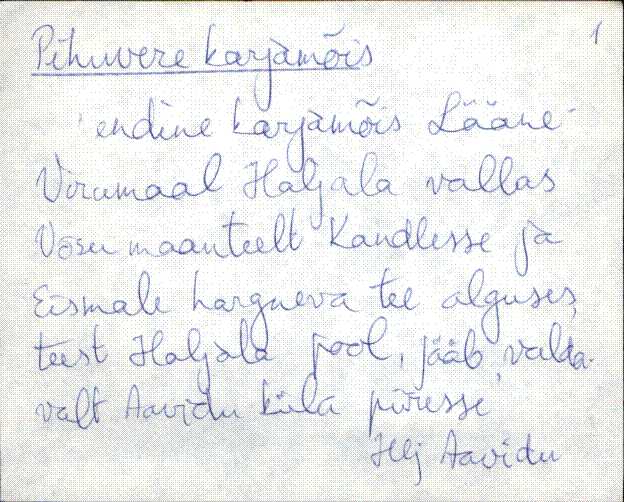 1
Pihuvere karjamõis
endine karjamõis Lääne-
Virumaal Haljala vallas
Võsu maanteelt Kandlesse ja
Eismale hargneva tee alguses,
teest Haljala pool, jääb valda-
valt Aavidu küla piiresse
Hlj Aavidu